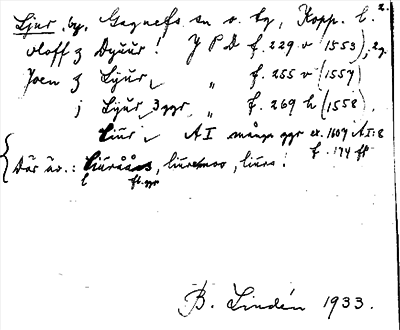 Ljur, by, Gagnefs sn o. tg, Kopp. l.
oloff z Dyuur! J P D f. 229 v (1553), 2g.
Joen z Lyur „ f. 255 v (1557)
j Lyur 3 ggr „ f. 269 h (1558).
Liur A I många ggr ex. 1607 A I:8
f. 174 ff
Där äv.: liuråås, liurmoo, liurs!
fl. ggr
B. Lindén 1933.